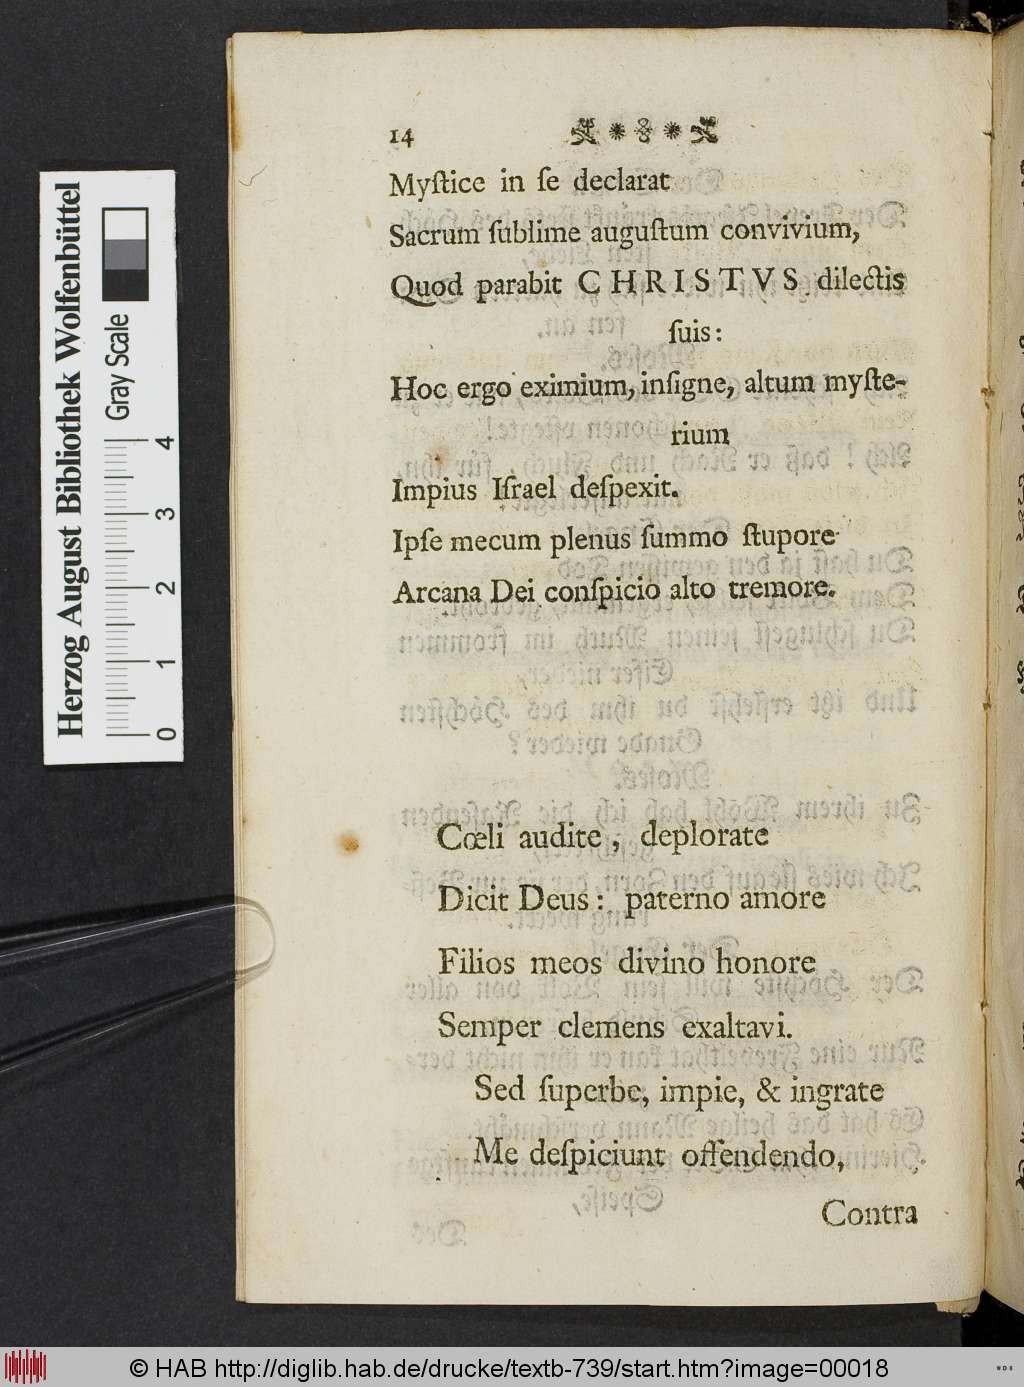 14
Myſtice in ſe declarat
Sacrum ſublime auguſtum convivium,
Quod parabit CHRISTVS dilectis
ſuis:
Hoc ergo eximium, inſigne, altum myſte-
rium
Impius Iſrael deſpexit.
Ipſe mecum plenus ſummo ſtupore
Arcana Dei conſpicio alto tremore.
Cœli audite, deplorate
Dicit Deus: paterno amore
Filios meos divino honore
Semper clemens exaltavi.
Sed ſuperbe, impie, & ingrate
Me deſpiciunt offendendo,
Contra
Herzog August Bibliothek Wolfenbüttel
Gray Scale
0 1 2 3 4
© HAB http://diglib.hab.de/drucke/textb-739/start.htm?image=00018